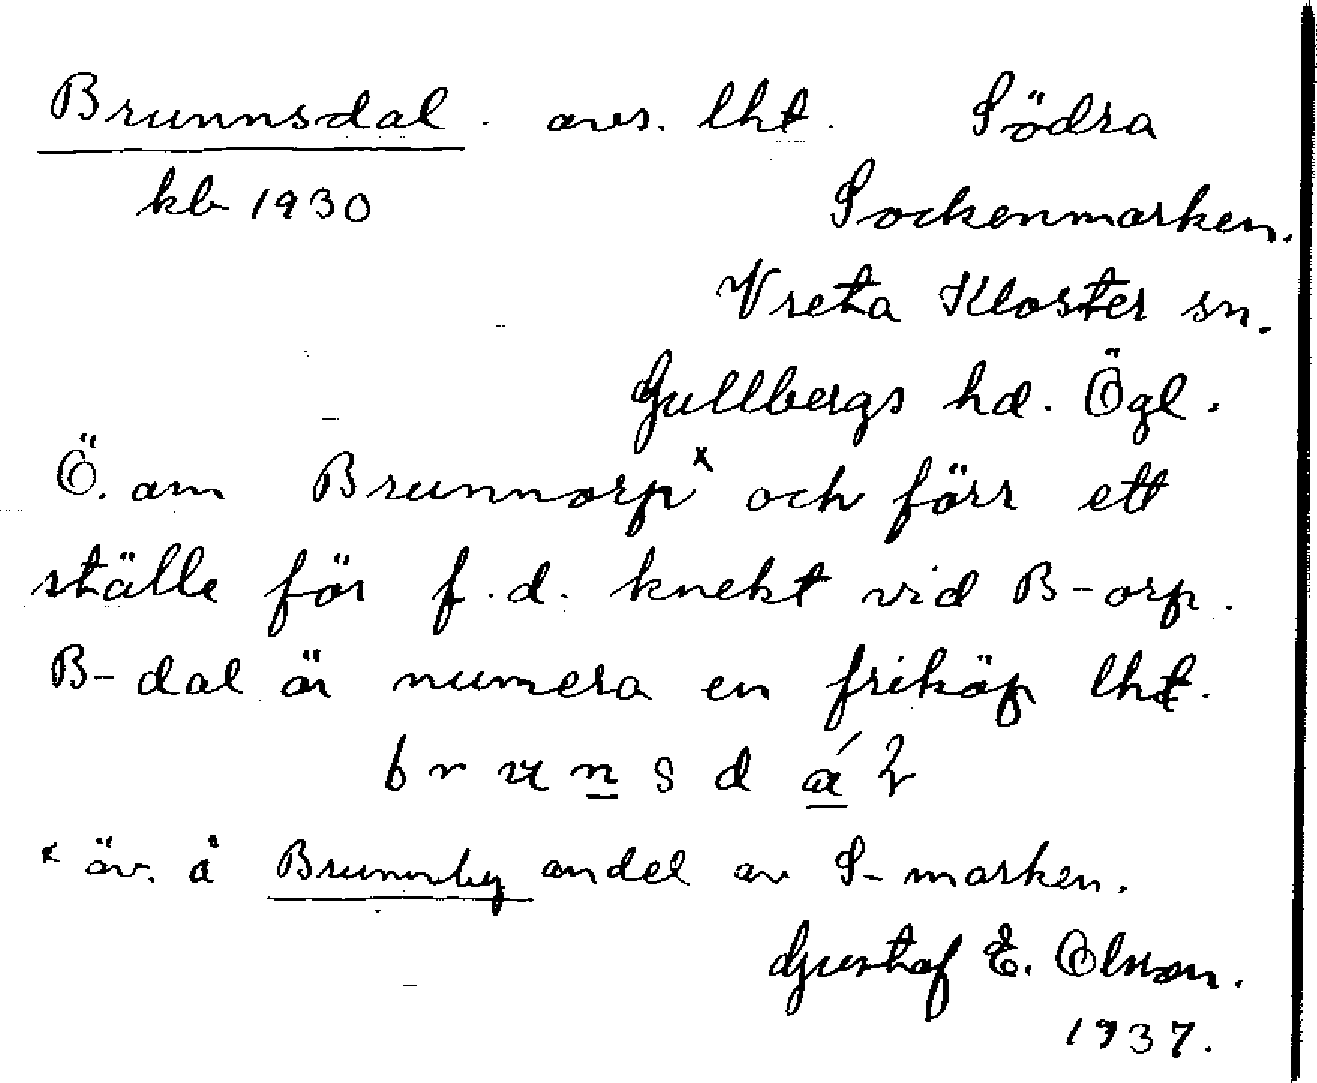 Brunnsdal. avs. lht. Södra
kb 1930 Sockenmarken.
Vreta Kloster sn.
Gullbergs hd. Ögl.
Ö. om Brunnorp x och förr ett
ställe för f.d. knekt vid B-orp.
B-dal är numera en friköp lht.
b r u n s d á l
x äv. å Brunnby andel av S-marken.
Gustaf E. Olsson.
1937.